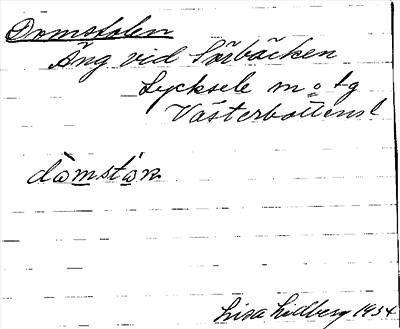 Domstolen
Äng vid Sörbäcken
Lycksele m o tg
Västerbottens l
dòmstàn
Lisa Lidberg 1934